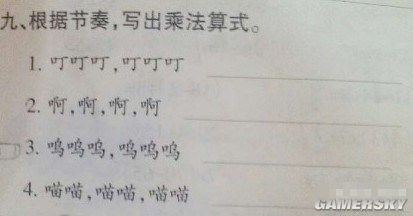 九、根据节奏,写出乘法算式。
1. 叮叮叮,叮叮叮
2. 啊,啊,啊,啊
3. 呜呜呜,呜呜呜
4. 喵喵,喵喵,喵喵
GAMERSKY